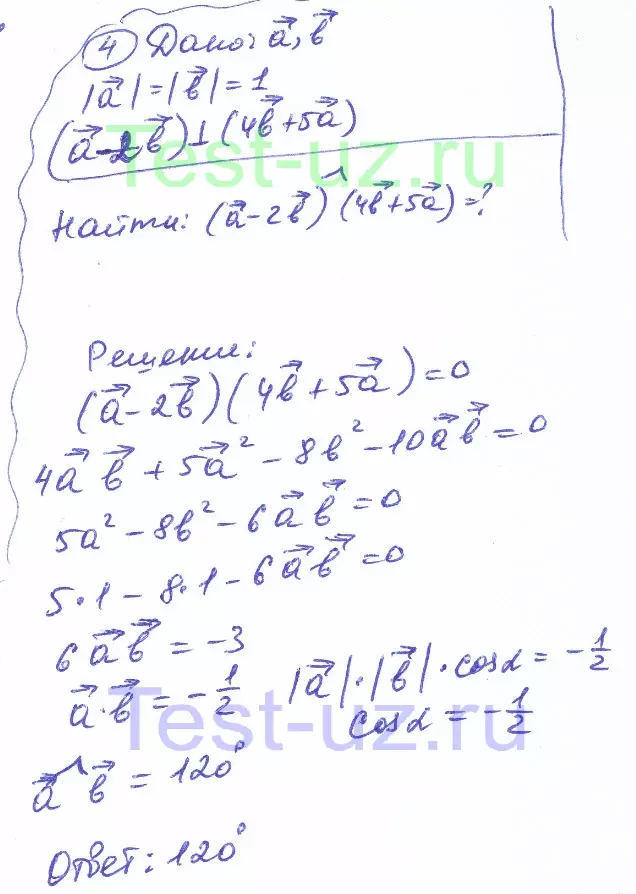 ④ Дано: a⃗, b⃗
|a⃗| = |b⃗| = 1
(a⃗ - 2b⃗) ⊥ (4b⃗ + 5a⃗)
Test-uz.ru
Найти: (a⃗ - 2b⃗) ^ (4b⃗ + 5a⃗) = ?
Решение:
(a⃗ - 2b⃗)(4b⃗ + 5a⃗) = 0
4a⃗ b⃗ + 5a⃗² - 8b² - 10a⃗ b⃗ = 0
5a² - 8b² - 6a⃗ b⃗ = 0
5·1 - 8·1 - 6a⃗ b⃗ = 0
6a⃗ b⃗ = -3
a⃗·b⃗ = -1/2
|a⃗|·|b⃗|·cosα = -1/2
cosα = -1/2
Test-uz.ru
a⃗ ^ b⃗ = 120°
Ответ: 120°